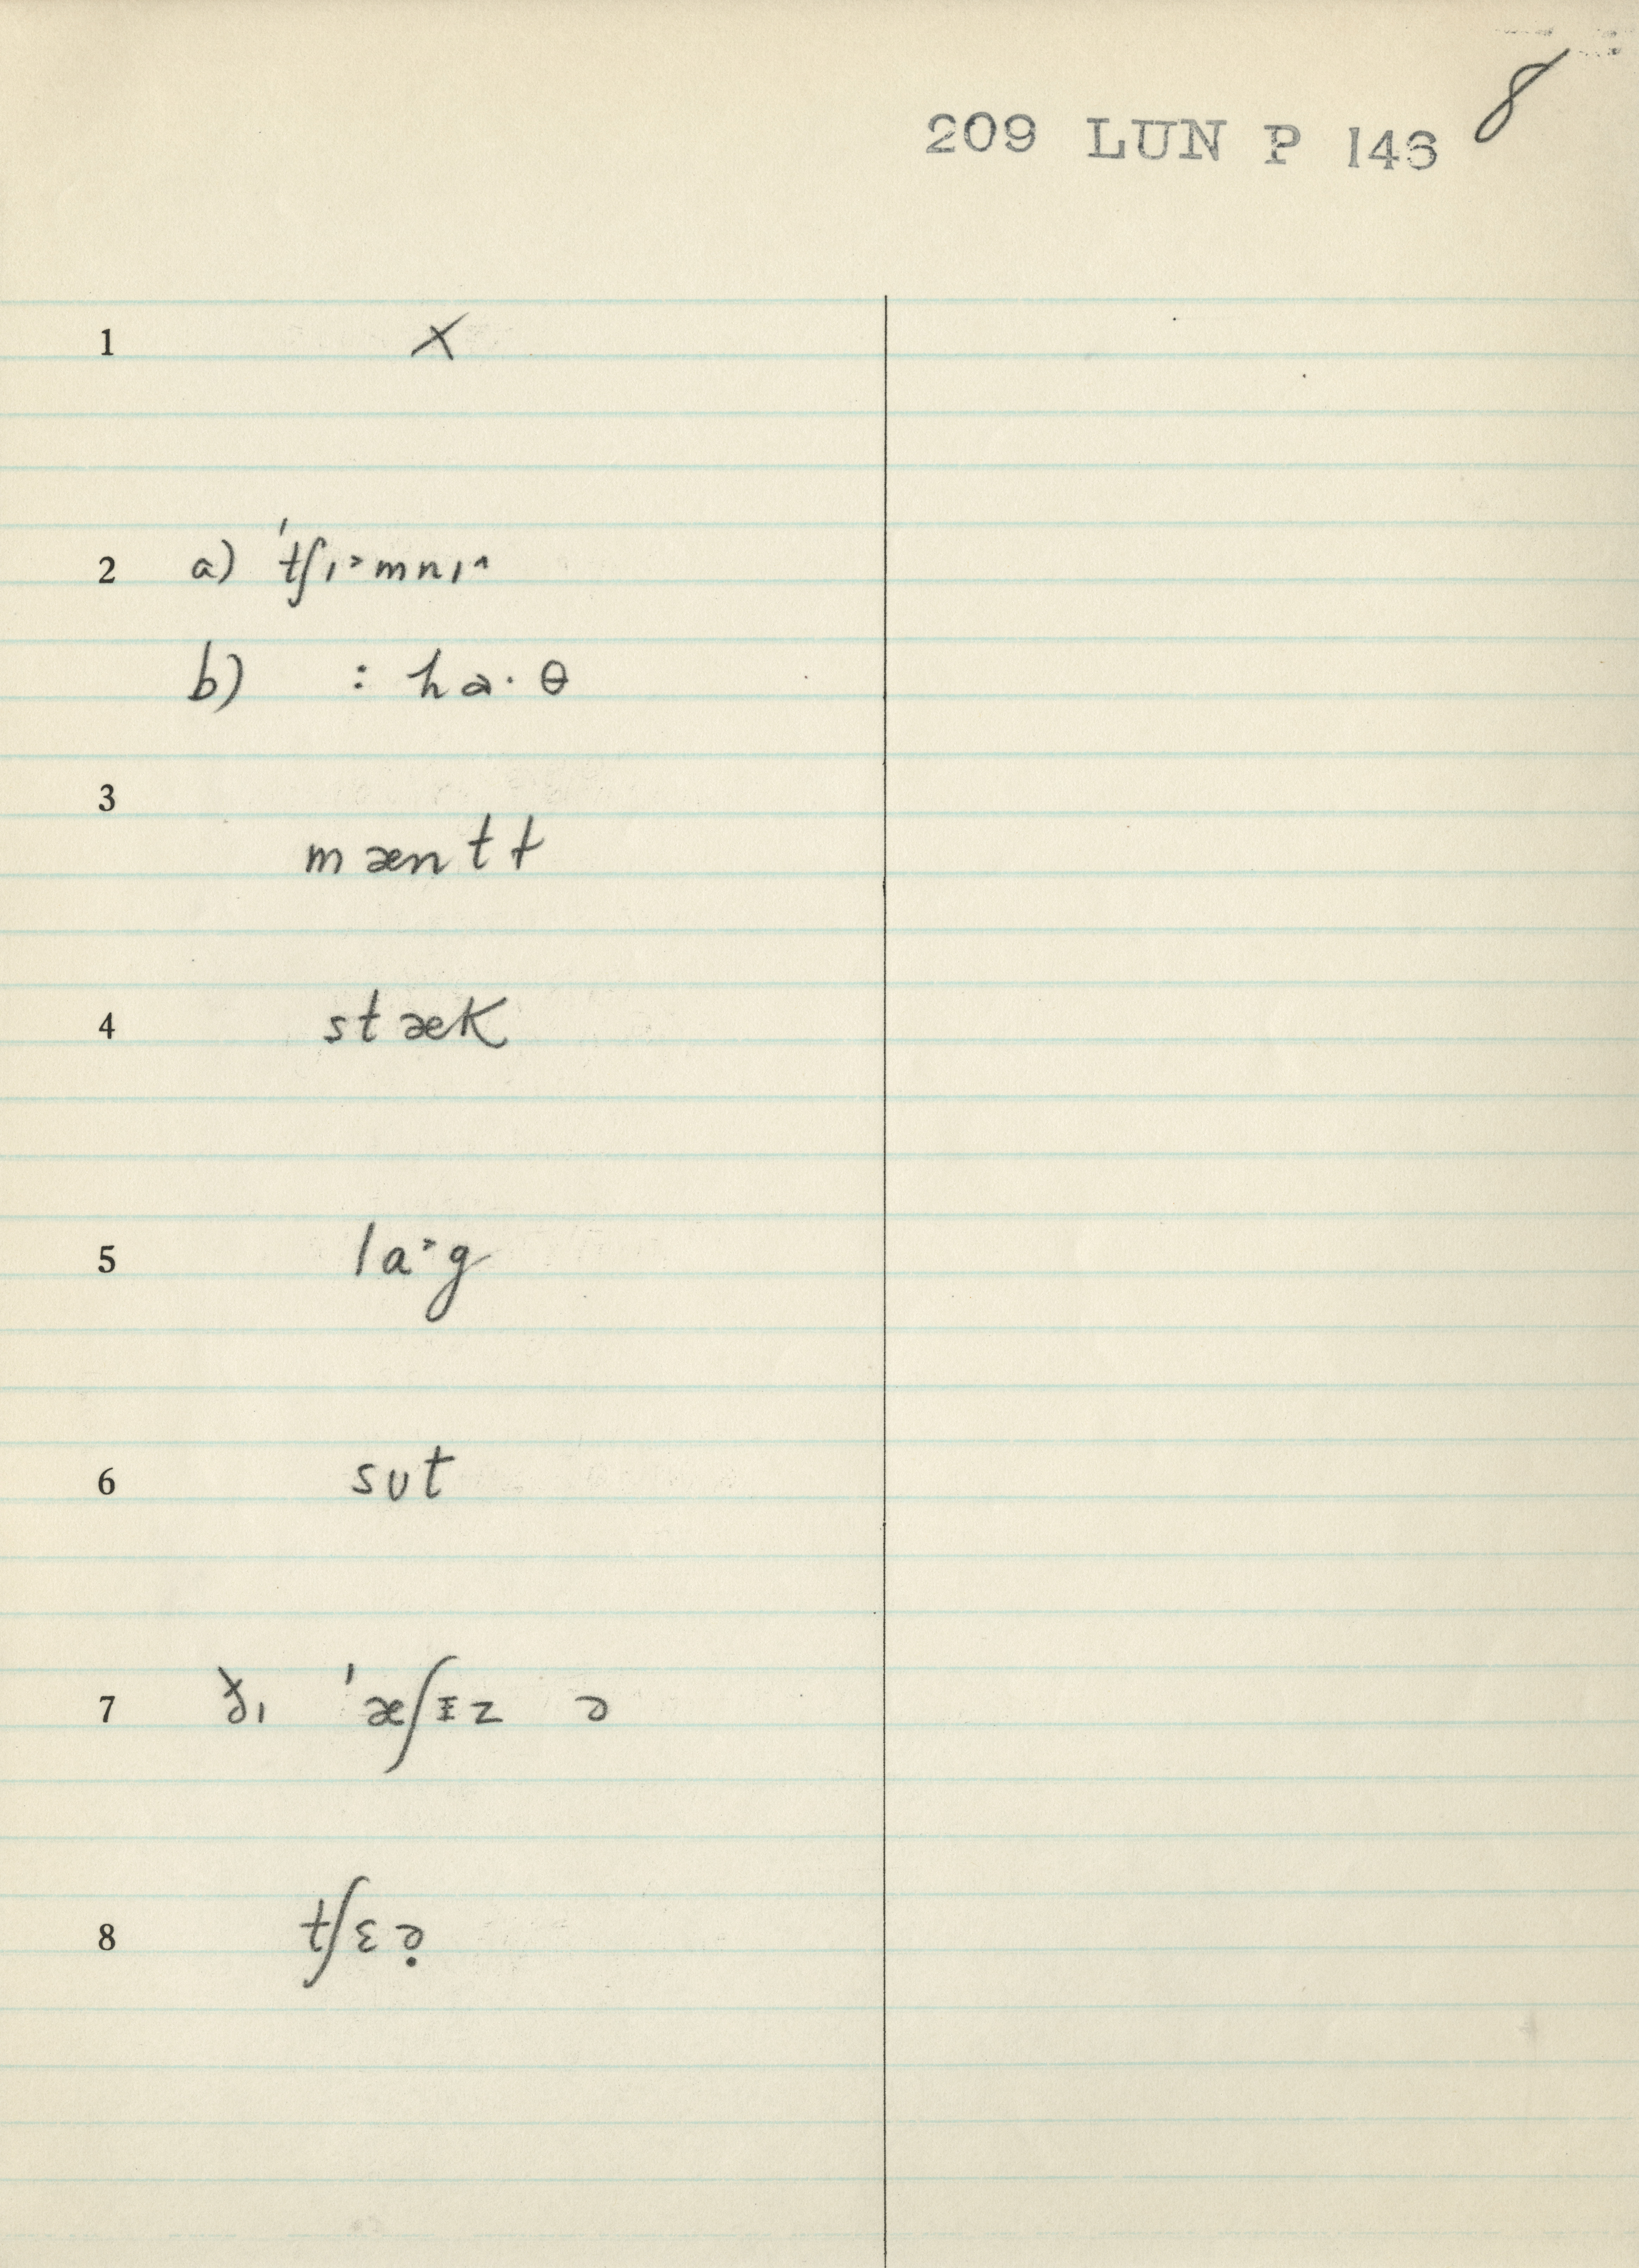 8
209 LUN P 146
1 ×
2 a) ˈtʃɪ˃mnɪ˄
b) : ha· θ
3
mæntɫ
4 stæk
5 la˃g
6 sʊt
7 ðɪ ˈæʃɪz ə
8 tʃɛə̣